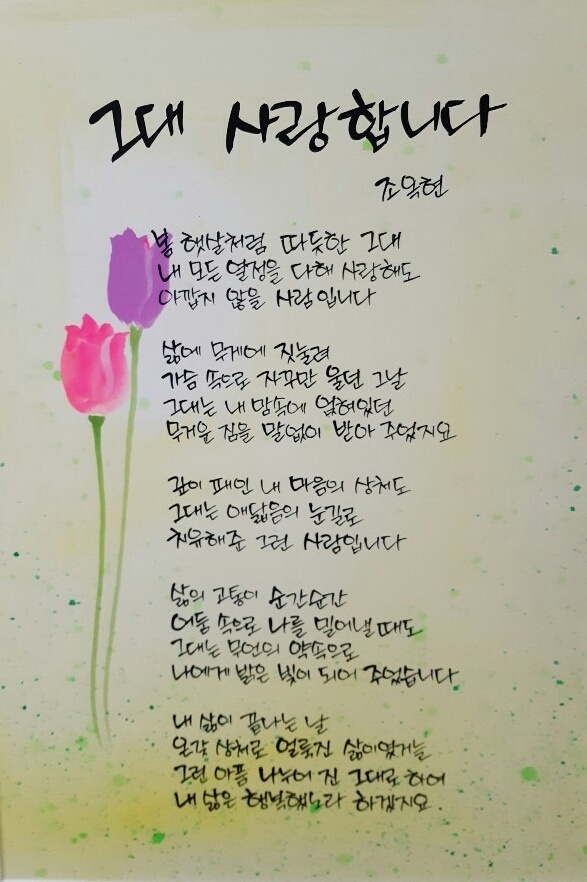 그대 사랑합니다
조옥현
봄 햇살처럼 따듯한 그대
내 모든 열정을 다해 사랑해도
아깝지 않을 사람입니다
삶에 무게에 짓눌려
가슴 속으로 자꾸만 울던 그날
그대는 내 맘속에 얹혀있던
무거운 짐을 말없이 받아 주었지요
깊이 패인 내 마음의 상처도
그대는 애닯음의 눈길로
치유해준 그런 사람입니다
삶의 고통이 순간순간
어둠 속으로 나를 밀어낼 때도
그대는 무언의 약속으로
나에게 밝은 빛이 되어 주었습니다
내 삶이 끝나는 날
온갖 상처로 얼룩진 삶이었거늘
그런 아픔 나누어 진 그대로 하여
내 삶은 행복했노라 하겠지요.